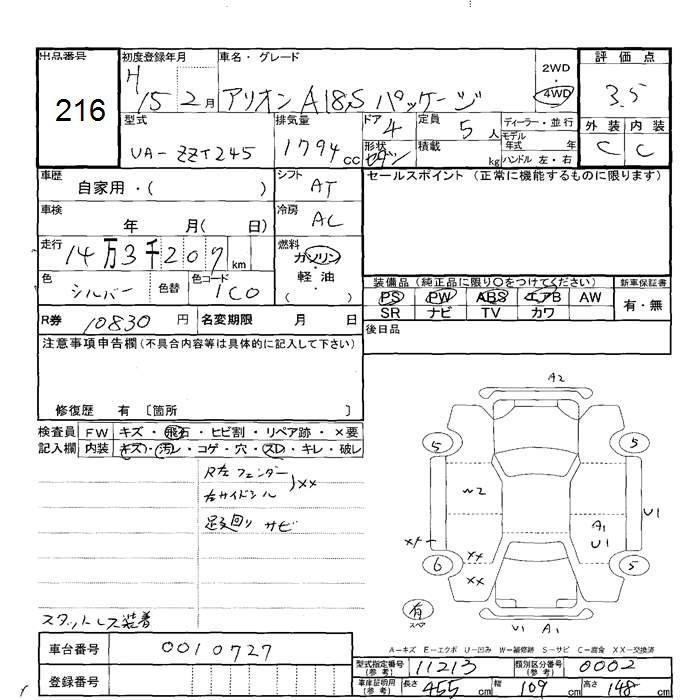 出品番号
216
初度登録年月
H 15 2月
車名・グレード
アリオン A18S パッケージ
2WD
4WD
評価点
3.5
外装 内装
C C
型式
UA-ZZT245
排気量
1794 cc
ドア 4
形状 セダン
定員 5人
積載 kg
ディーラー・並行
モデル年式 年
ハンドル 左・右
車歴
自家用・( )
シフト
AT
セールスポイント (正常に機能するものに限ります)
車検
年 月( 日)
冷房
AC
走行
14万3千207km
燃料
ガソリン
・軽油・
( )
色
シルバー
色替
色コード
1C0
装備品 (純正品に限り〇をつけてください)
新車保証書
PS PW ABS エアB AW
SR ナビ TV カワ
有・無
R券 10830 円
名変期限 月 日
後日品
注意事項申告欄(不具合内容等は具体的に記入して下さい)
修復歴 有 〔箇所 〕
検査員
記入欄
FW キズ・飛石・ヒビ割・リペア跡・×要
内装 キズ・汚レ・コゲ・穴・スレ・キレ・破レ
R左フェンダー
右サイドシル
)XX
足廻り サビ
スタットレス装着
A2
5
5
~2
A1
U1
U1
XX
XX
6
5
有
スペア
U1 A1
A-キズ E-エクボ U-凹み W-補修跡 S-サビ C-腐食 XX-交換済
車台番号
0010727
登録番号
型式指定番号
(参考)
11213
類別区分番号
(参考)
0002
車庫証明用
(参考)
長さ 455 cm
幅 169 cm
高さ 148 cm